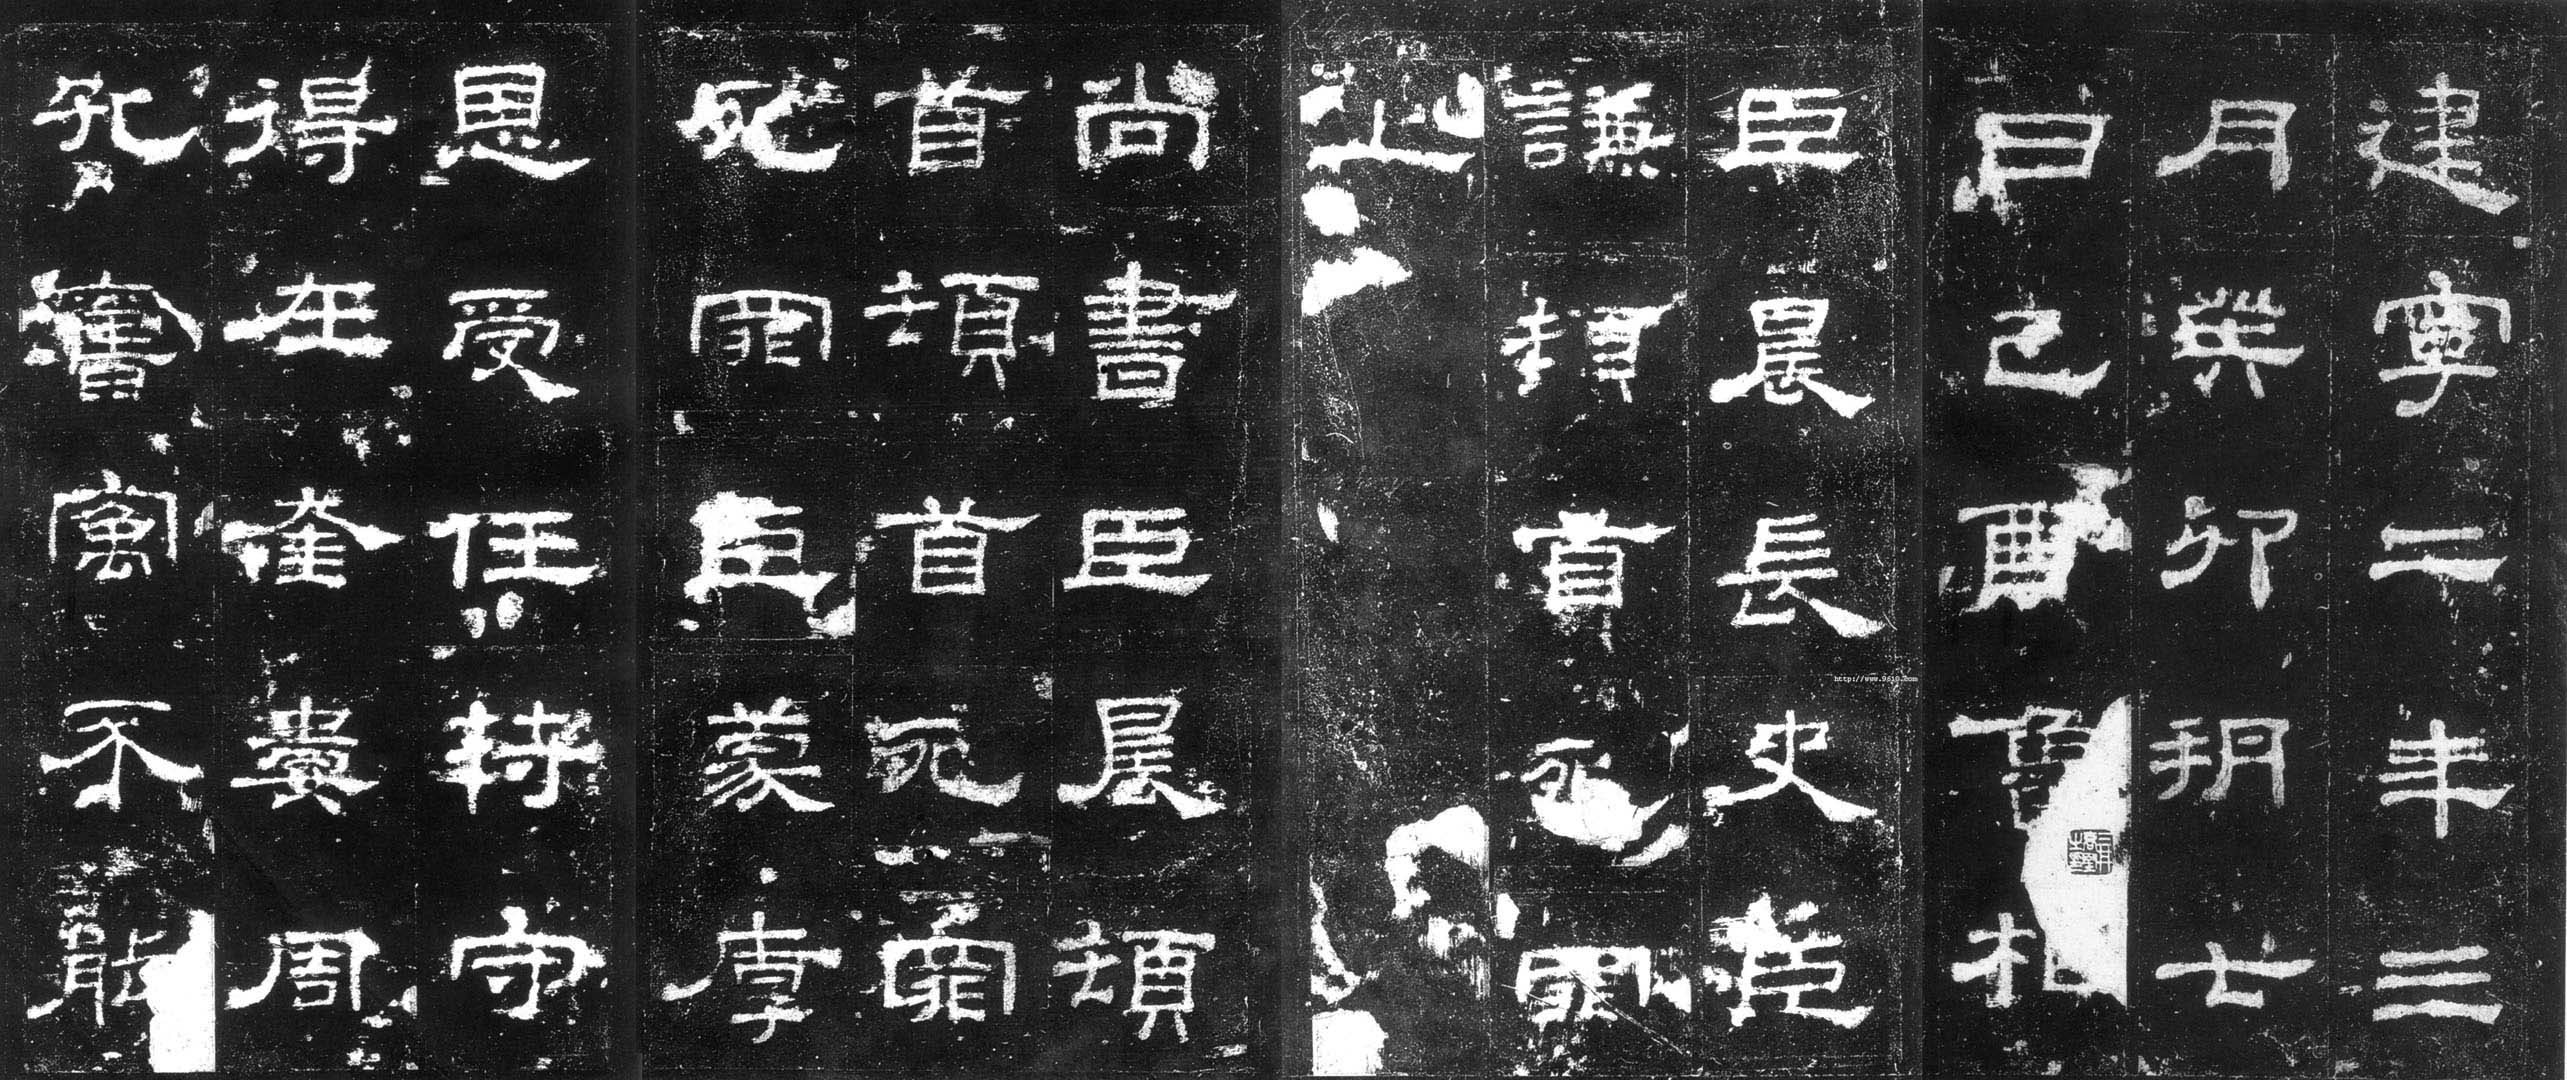 建寧二年三
月癸卯朔七
日己酉魯相
臣晨長史臣
謙頓首死罪
上
尚書臣晨頓
首頓首死罪
死罪臣蒙厚
恩受任符守
得在奎婁周
孔舊寓不能
http://www.9610.com